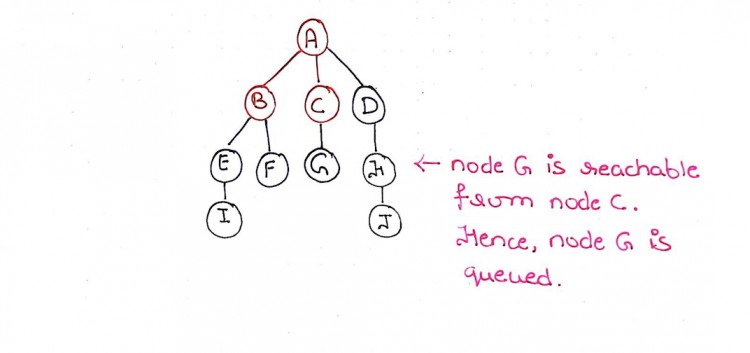 A
B C D
E F G H
I J
← node G is reachable
from node C.
Hence, node G is
queued.